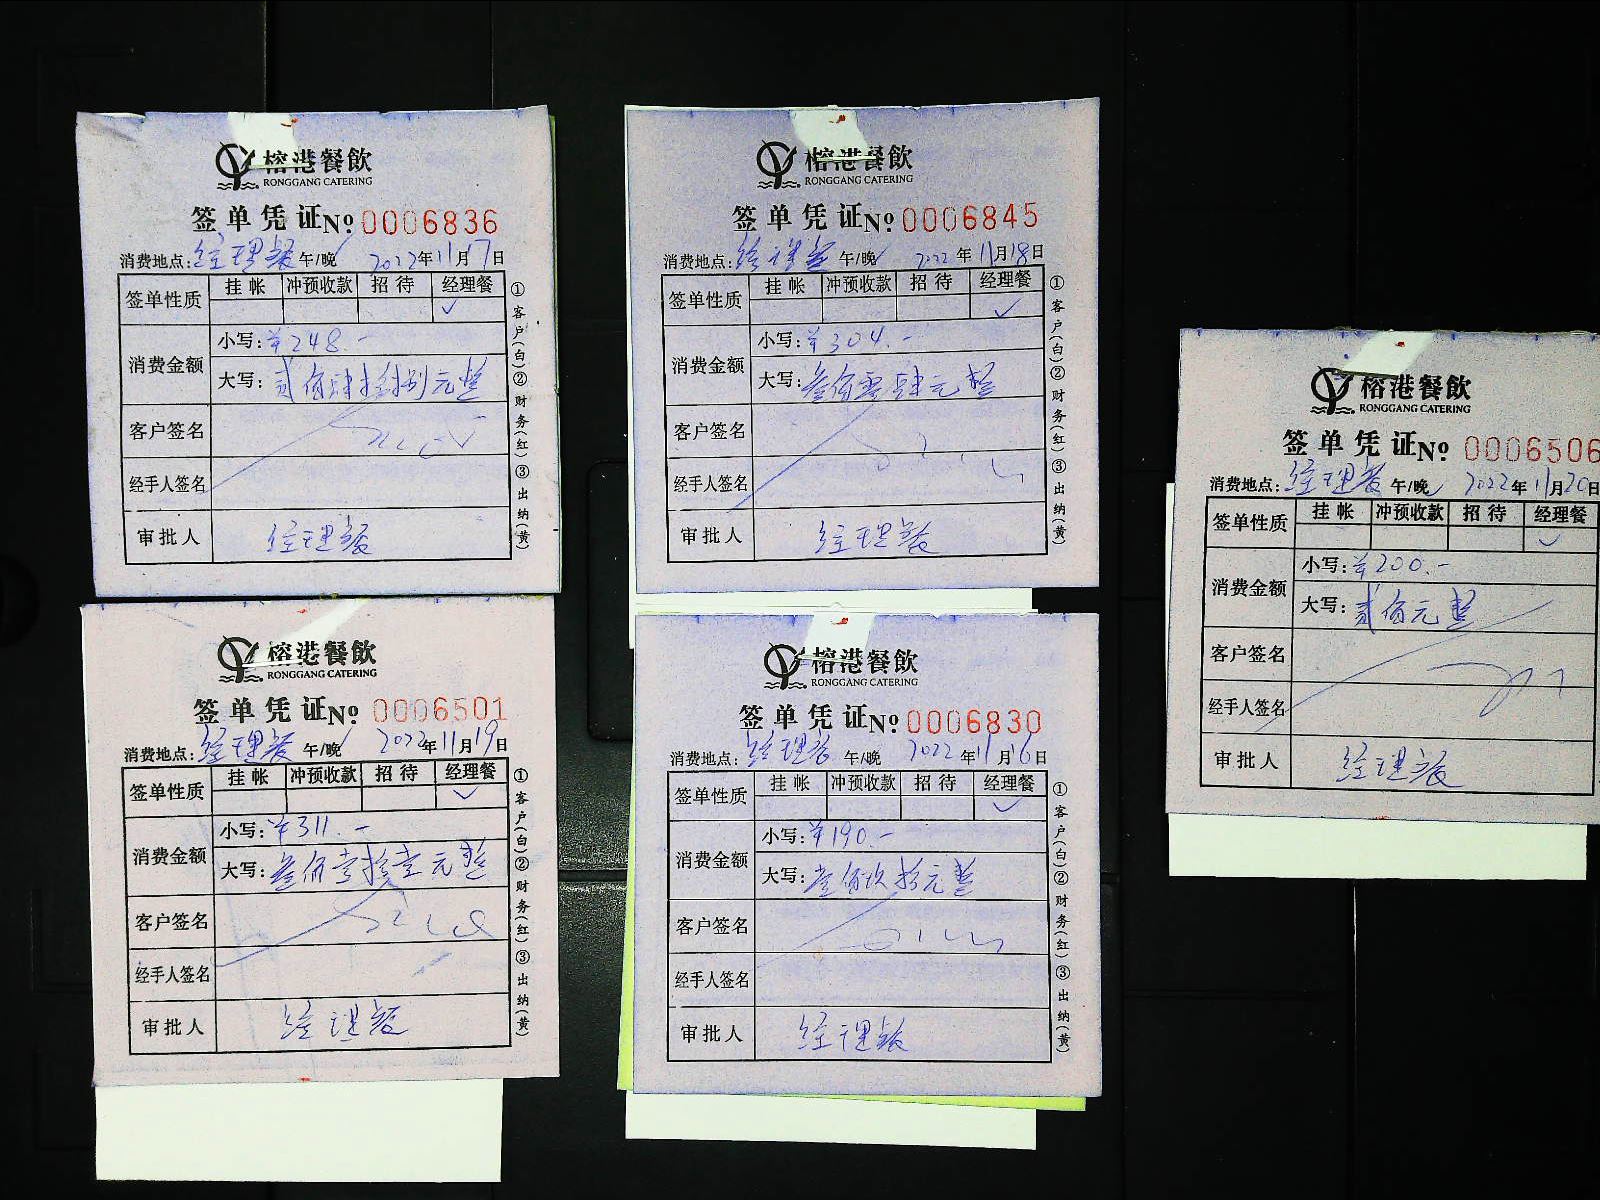 榕港餐飲
RONGGANG CATERING
签单凭证№ 0006836
消费地点:经理餐 午/晚 2022年11月17日
签单性质 挂帐 冲预收款 招待 经理餐
✓
消费金额 小写:¥248.-
大写:贰佰肆拾捌元整
客户签名
经手人签名
审批人 经理餐
①客户(白)②财务(红)③出纳(黄)
榕港餐飲
RONGGANG CATERING
签单凭证№ 0006845
消费地点:经理餐 午/晚 2022年11月18日
签单性质 挂帐 冲预收款 招待 经理餐
✓
消费金额 小写:¥304.-
大写:叁佰零肆元整
客户签名
经手人签名
审批人 经理餐
①客户(白)②财务(红)③出纳(黄)
榕港餐飲
RONGGANG CATERING
签单凭证№ 0006506
消费地点:经理餐 午/晚 2022年11月20日
签单性质 挂帐 冲预收款 招待 经理餐
✓
消费金额 小写:¥200.-
大写:贰佰元整
客户签名
经手人签名
审批人 经理餐
榕港餐飲
RONGGANG CATERING
签单凭证№ 0006501
消费地点:经理餐 午/晚 2022年11月19日
签单性质 挂帐 冲预收款 招待 经理餐
✓
消费金额 小写:¥311.-
大写:叁佰壹拾壹元整
客户签名
经手人签名
审批人 经理餐
①客户(白)②财务(红)③出纳(黄)
榕港餐飲
RONGGANG CATERING
签单凭证№ 0006830
消费地点:经理餐 午/晚 2022年11月16日
签单性质 挂帐 冲预收款 招待 经理餐
✓
消费金额 小写:¥190.-
大写:壹佰玖拾元整
客户签名
经手人签名
审批人 经理餐
①客户(白)②财务(红)③出纳(黄)